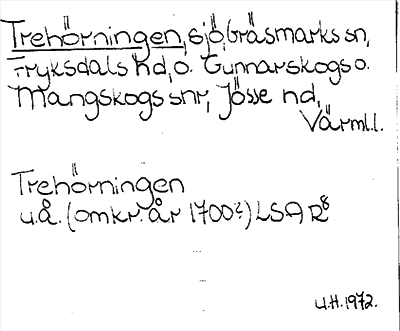 Trehörningen, sjö, Gräsmarks sn,
Fryksdals hd, o. Gunnarskogs o.
Mangskogs snr, Jösse hd,
Värml.l.
Trehörningen
u.å. (omkr. år 1700?) LSA R8
U.H. 1972.